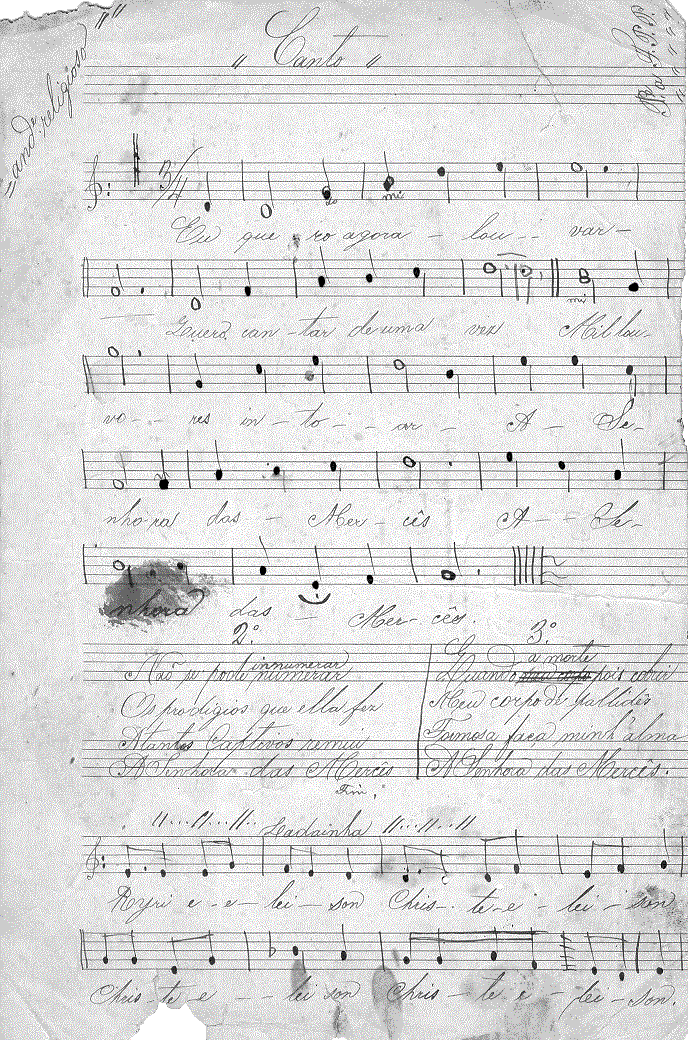 "Canto"
"and.e religioso"
3/4
do mi
Eu que - ro agora - lou - - var -
Quero can - tar de uma vez Mil lou-
vo - - res in - to - - ar - A - Se-
nhora das - Mer - cês A - - Se-
nhora das - Mer - cês.
2.º
Não se pode innumerar numerar
Os prodigios que ella fez
A tantos Captivos remiu
A Senhora das Mercês
3.º
Quando a morte pois cobrir
Meu corpo de pallidês
Formosa faça minh'alma
A Senhora das Mercês.
Fim.
Ladainha
Kyri e - e - lei - son Chris - te - e - lei - son
Chris - te - e - - lei son Chris - te - e - lei - son.